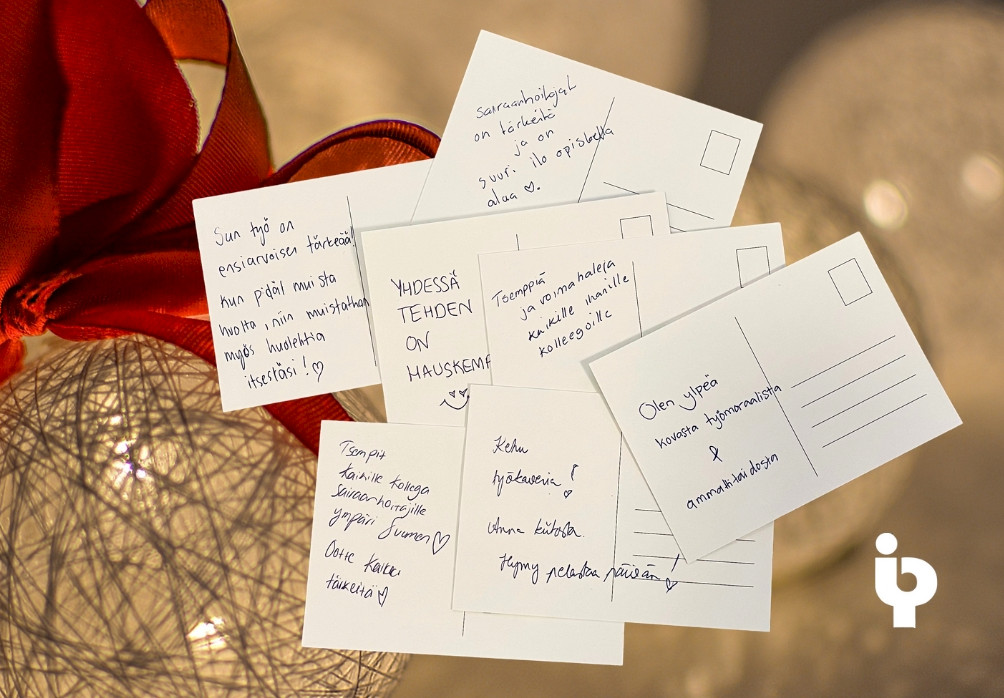 Sairaanhoitajat
on tärkeitä
ja on
suuri ilo opiskella
alaa ♡.
Sun työ on
ensiarvoisen tärkeää!
Kun pidät muista
huolta, niin muistathan
myös huolehtia
itsestäsi! ♡
YHDESSÄ
TEHDEN
ON
HAUSKEMP
Tsemppiä
ja voimahaleja
kaikille ihanille
kollegoille
Olen ylpeä
kovasta työmoraalista
&
ammattitaidosta
Tsempit
Kaikille kollega
sairaanhoitajille
ympäri Suomen ♡
Ootte kaikki
tärkeitä ♡
Kehu
työkaveria!
Anna kiitosta.
Hymy pelastaa päivän!